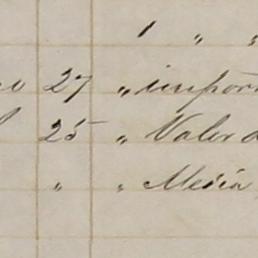 1 " "
27 " impor
25 " Valor d
" " Media